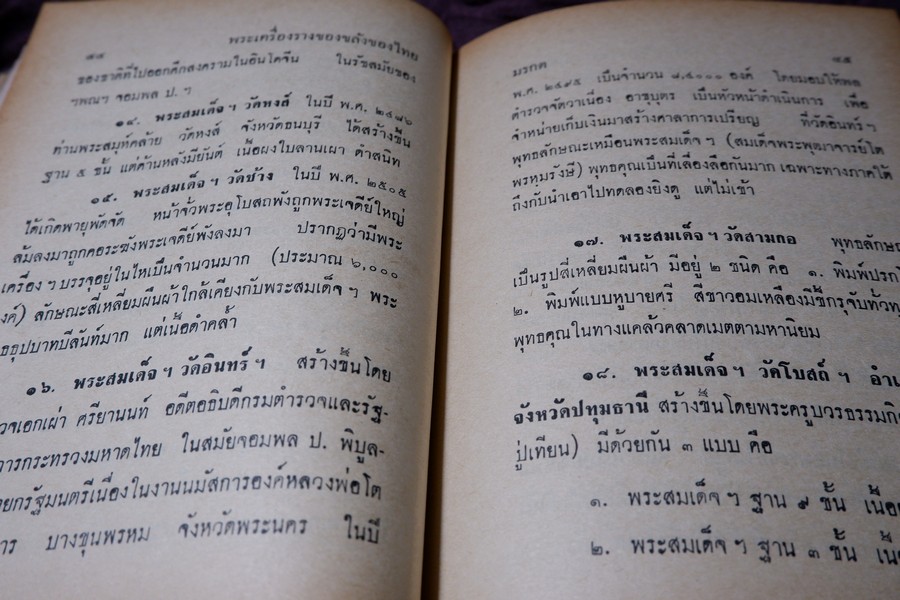 ๔๔ พระเครื่องรางของขลังของไทย
ของชาติที่ไปออกศึกสงครามในอินโดจีน ในรัชสมัยของ
ฯพณฯ จอมพล ป. ฯ
๑๔. พระสมเด็จ ฯ วัดหงส์ ในปี พ.ศ. ๒๔๘๖
ท่านพระสมุห์คล้าย วัดหงส์ จังหวัดธนบุรี ได้สร้างขึ้น
ฐาน ๕ ชั้น แต่ด้านหลังมียันต์ เนื้อผงใบลานเผา ดำสนิท
๑๕. พระสมเด็จ ฯ วัดช้าง ในปี พ.ศ. ๒๕๐๕
ได้เกิดพายุพัดจัด หน้าจั่วพระอุโบสถพังถูกพระเจดีย์ใหญ่
ล้มลงมาถูกคอระฆังพระเจดีย์พังลงมา ปรากฏว่ามีพระ
เครื่อง ฯ บรรจุอยู่ในไหเป็นจำนวนมาก (ประมาณ ๖,๐๐๐
องค์) ลักษณะสี่เหลี่ยมผืนผ้าใกล้เคียงกับพระสมเด็จ ฯ พระ
ธุปบาทปิลันท์มาก แต่เนื้อดำคล้ำ
๑๖. พระสมเด็จ ฯ วัดอินทร์ ฯ สร้างขึ้นโดย
เอกเผ่า ศรียานนท์ อดีตอธิบดีกรมตำรวจและรัฐ-
การกระทรวงมหาดไทย ในสมัยจอมพล ป. พิบูล-
นายกรัฐมนตรีเนื่องในงานนมัสการองค์หลวงพ่อโต
บางขุนพรหม จังหวัดพระนคร ในปี
มรกต ๔๕
พ.ศ. ๒๔๙๕ เป็นจำนวน ๘,๔๐๐๐ องค์ โดยมอบให้พล
ตำรวจจัตวาเนื่อง อาชุบุตร เป็นหัวหน้าดำเนินการ เพื่อ
จำหน่ายเก็บเงินมาสร้างศาลาการเปรียญ ที่วัดอินทร์ ฯ
พุทธลักษณะเหมือนพระสมเด็จ ฯ (สมเด็จพระพุฒาจารย์โต
พรหมรังษี) พุทธคุณเป็นที่เลื่องลือกันมาก เฉพาะทางภาคใต้
ถึงกับนำเอาไปทดลองยิงดู แต่ไม่เข้า
๑๗. พระสมเด็จ ฯ วัดสามกอ พุทธลักษณ
เป็นรูปสี่เหลี่ยมผืนผ้า มีอยู่ ๒ ชนิด คือ ๑. พิมพ์ปรกโ
๒. พิมพ์แบบหูบายศรี สีขาวอมเหลืองมีขี้กรุจับทั่วทุ
พุทธคุณในทางแคล้วคลาดเมตตามหานิยม
๑๘. พระสมเด็จ ฯ วัดโบสถ์ ฯ อำเ
จังหวัดปทุมธานี สร้างขึ้นโดยพระครูบวรธรรมกิ
ปู่เทียน) มีด้วยกัน ๓ แบบ คือ
๑. พระสมเด็จ ฯ ฐาน ๙ ชั้น เนื้อ
๒. พระสมเด็จ ฯ ฐาน ๓ ชั้น เนื้